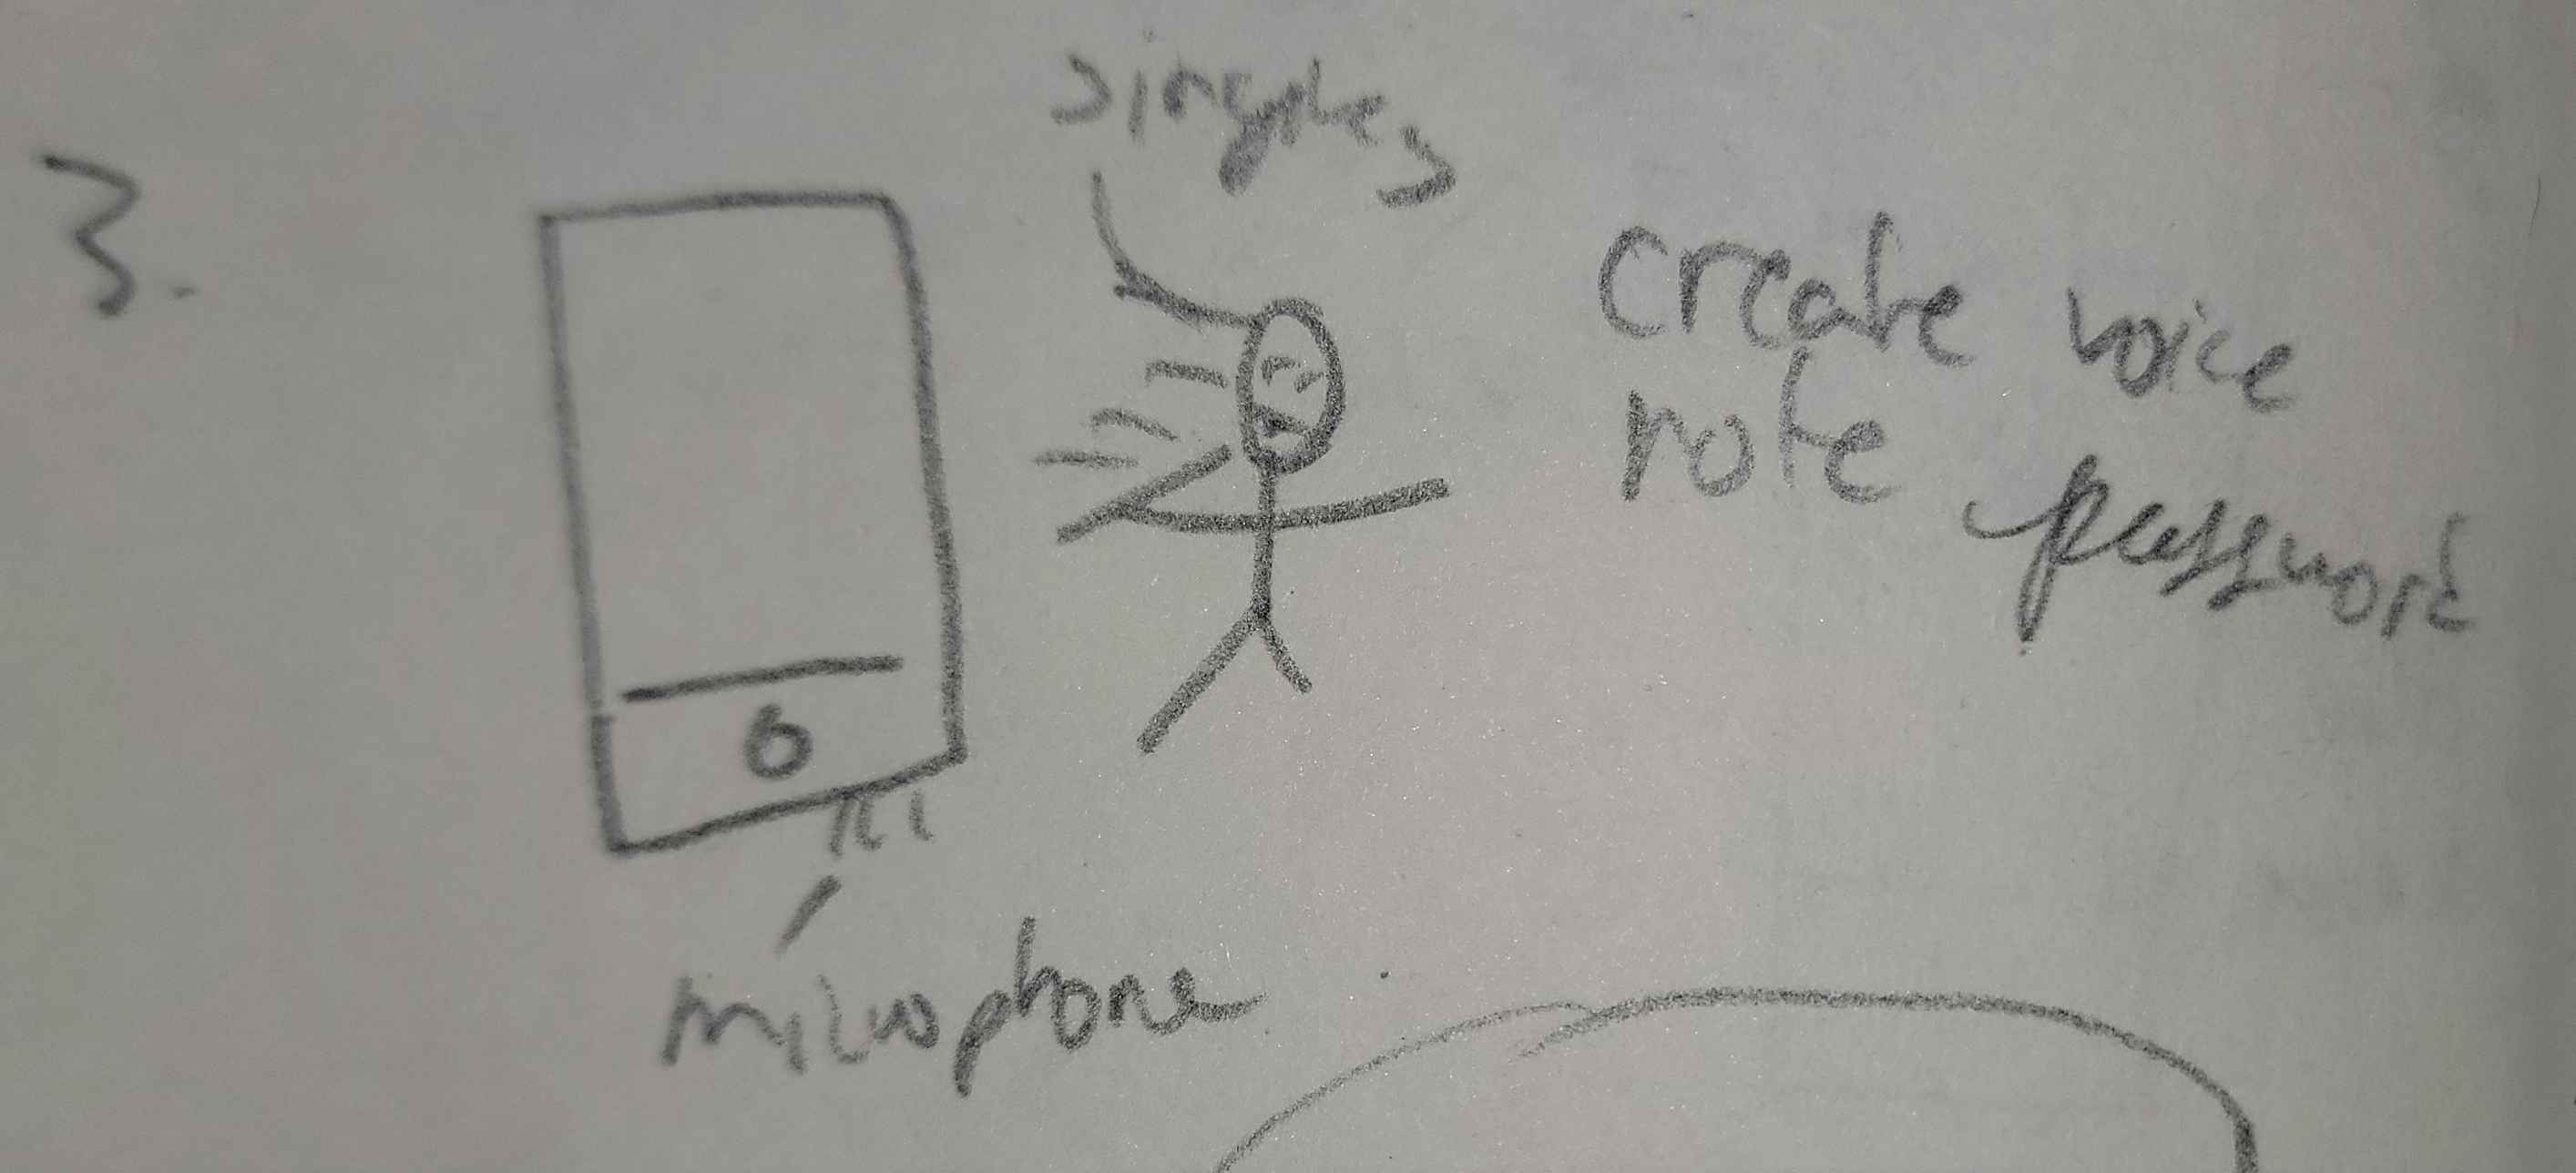 3.
create voice
note password
microphone